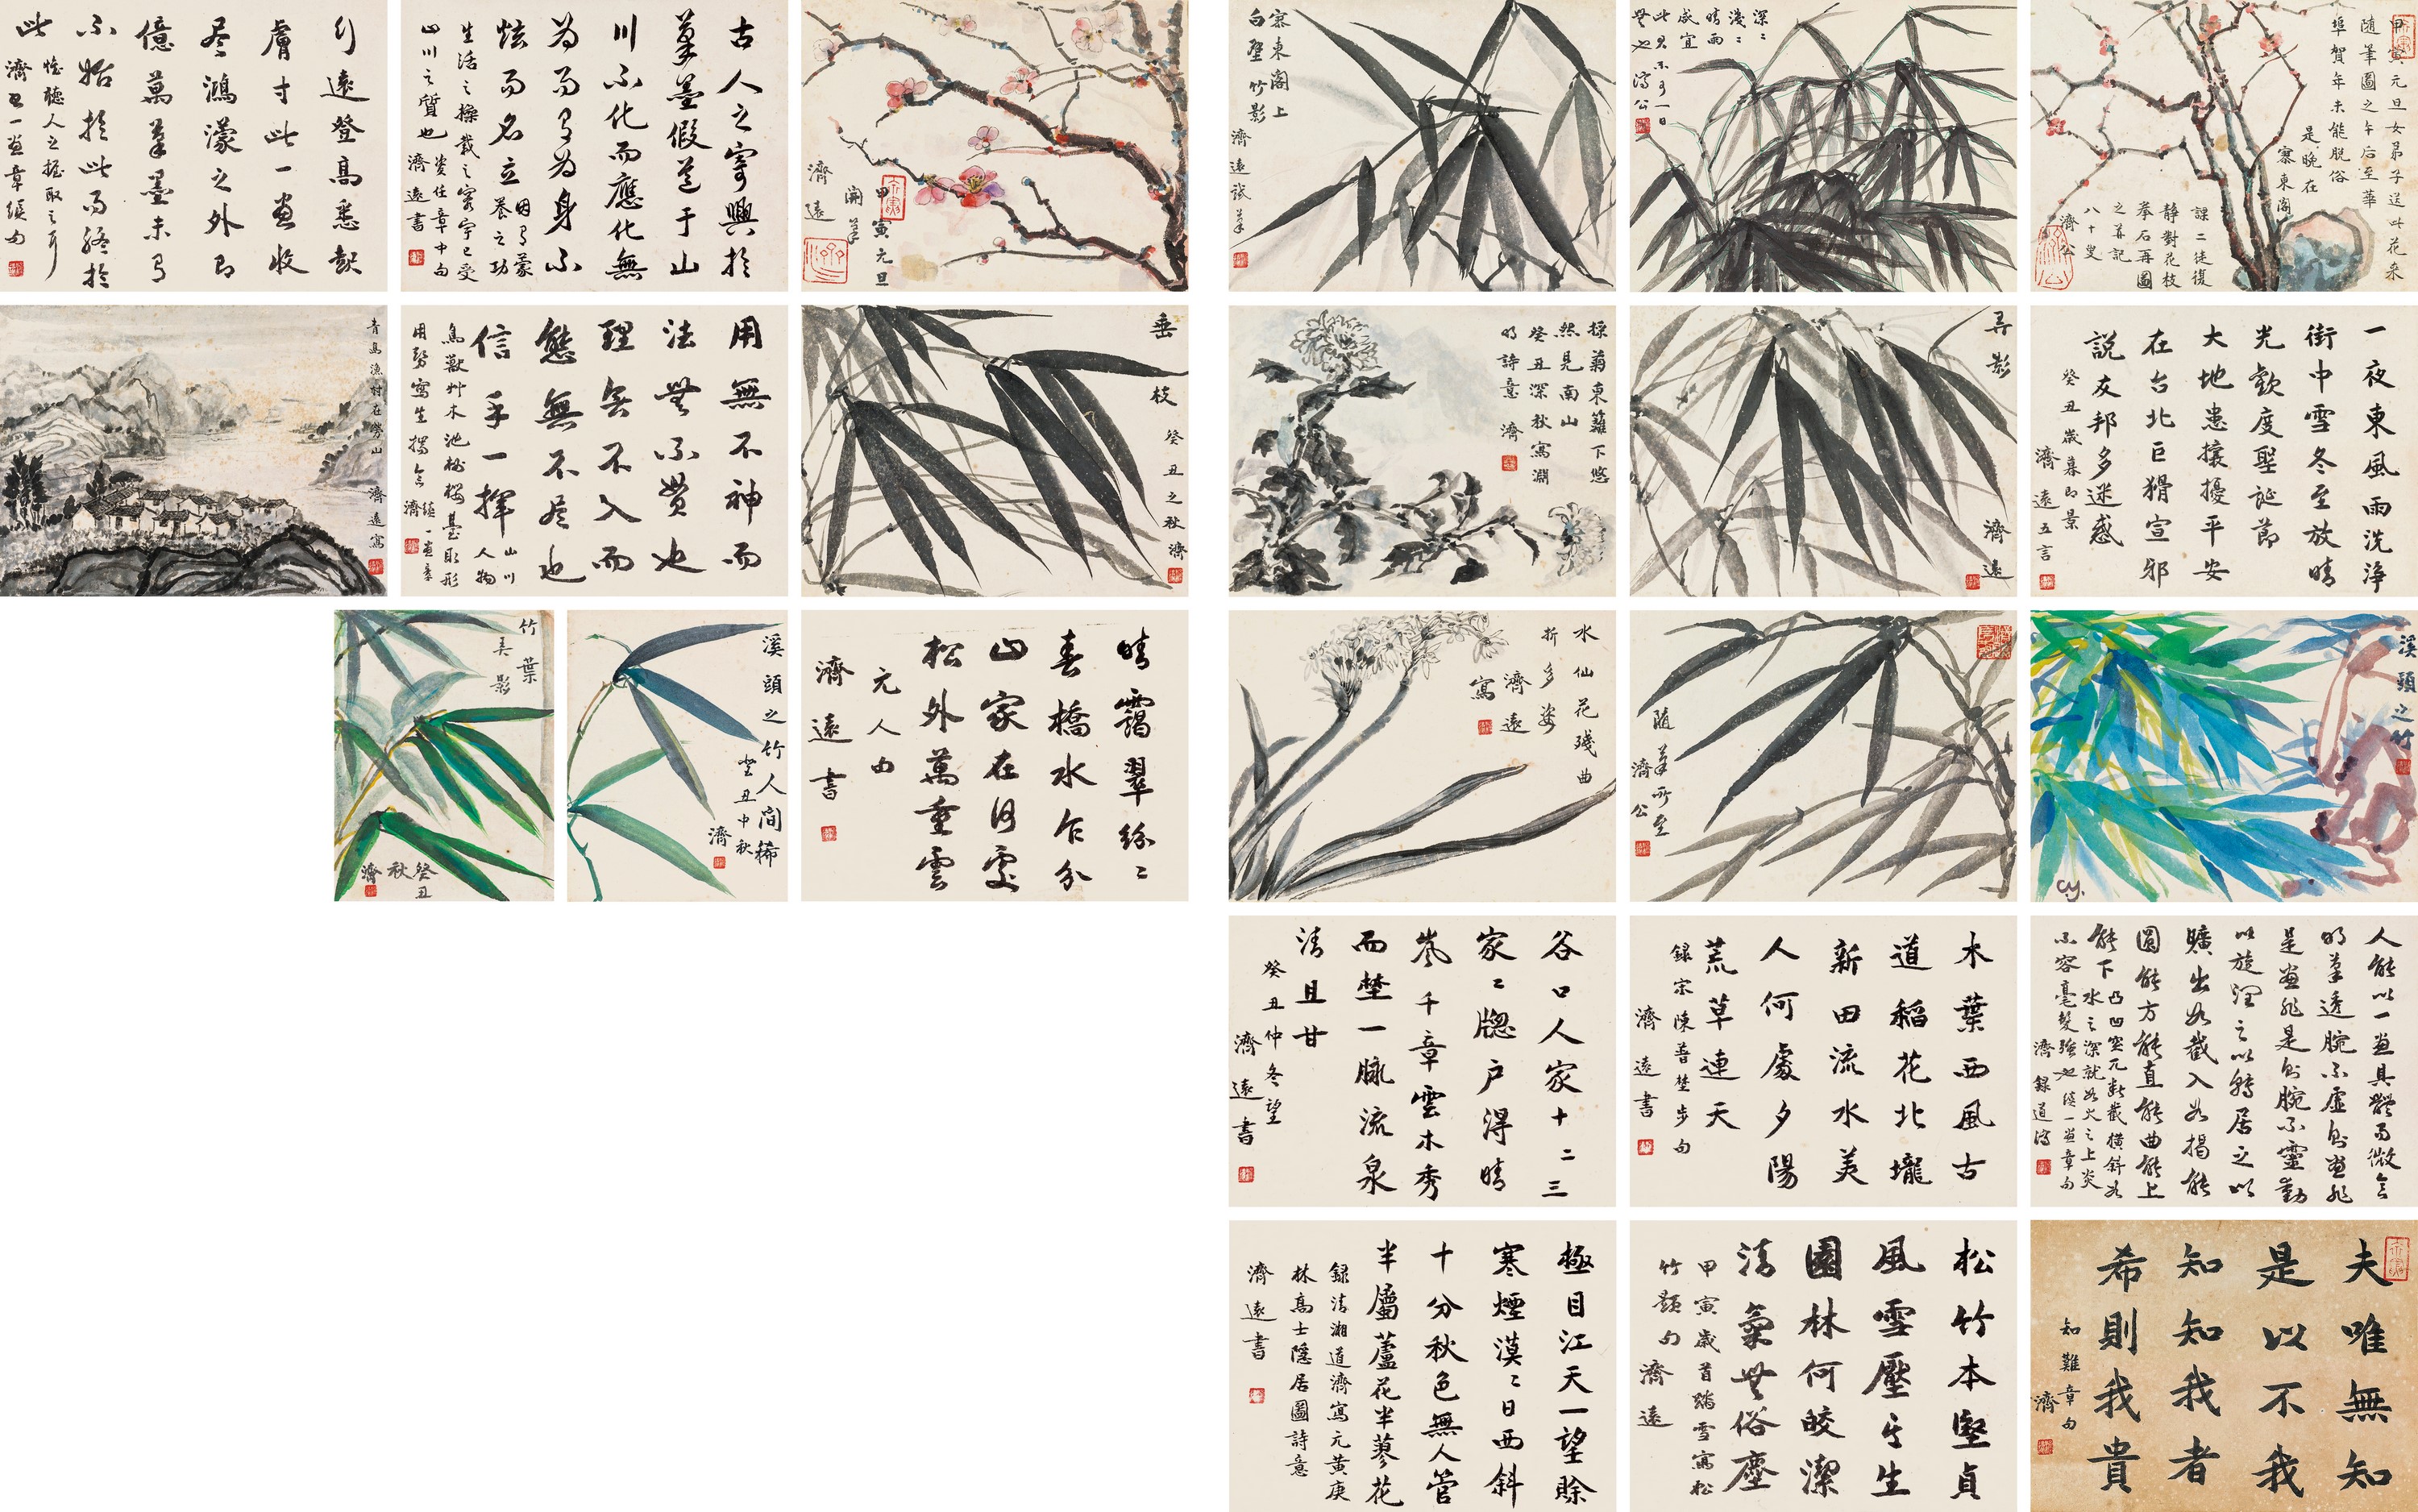 行遠登高悉起
膚寸此一畫收
盡鴻濛之外即
億萬筆墨未有
不始於此而終於
此
惟聽人之握取之耳
一畫章績句
古人之寄興於
筆墨假道于山
川不化而應化無
為而有為身不
炫而名立
因有蒙
養之功
生活之操載之寰宇已受
山川之質也
資任章中句
濟遠書
甲寅元旦
開筆
濟遠
寨東閣上
白壁竹影
濟遠試筆
深〻淺〻
晴雨咸宜
此君不可一日
無也
濟公
甲寅元旦女弟子送此花來
隨筆圖之午后至華
埠賀年未能脫俗
是晚在
寨東閣
課二徒復
靜對花枝
拳石再圖
之并記
八十叟
濟公
青島漁村在勞山
濟遠寫
用無不神而
法無不貫也
理無不入而
態無不盡也
信手一揮
山川
人物
鳥獸艸木池榭樓臺取形
用勢寫生揣意
績一畫章
濟
垂枝
癸丑之秋濟
採菊東籬下悠
然見南山
癸丑深秋寫淵
明詩意
濟
弄影
濟遠
一夜東風雨洗淨
街中雪冬至放晴
光歡度聖誕節
大地患攘擾平安
在台北巨猾宣邪
說友邦多迷惑
癸丑歲暮即景
濟遠五言
竹葉弄影
癸丑秋
濟
溪頭之竹人間稀
癸丑中秋
濟
晴靄翠紛〻
春橋水乍分
山家在何處
松外萬重雲
元人句
濟遠書
水仙花殘曲
折多姿
濟遠寫
隨筆所至
濟公
溪頭之竹
CY.
谷口人家十二三
家〻牕户浔晴
嵐千章雲木秀
而埜一脉流泉
清且甘
癸丑仲冬望
濟遠書
木葉西風古
道稻花北壠
新田流水美
人何處夕陽
荒草連天
錄宗陳普埜步句
濟遠書
人能以一畫具體而微意
明筆透腕不虛則畫非
是畫非是則腕不靈動
之以旋潤之以轉居之以
曠出如截入如揭能
圓能方能直能曲能上
能下
凸凹突兀斷截橫斜如
水之深就如火之上炎
不容毫髮強也績一畫章句
濟錄道濟
極目江天一望賒
寒煙漠〻日西斜
十分秋色無人管
半屬蘆花半蓼花
録清湘道濟寫元黃庚
林高士隱居圖詩意
濟遠書
松竹本堅貞
風雪壓生生
園林何皎潔
清氣無俗塵
甲寅歲首踏雪寫松
竹題句
濟遠
夫唯無知
是以不我
知知我者
希則我貴
知難章句
濟